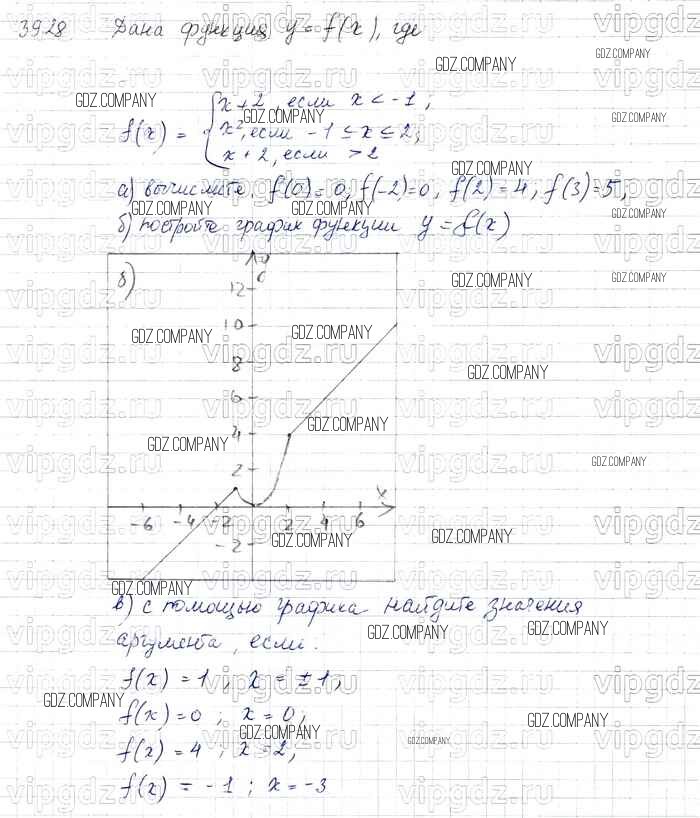 3928 Дана функция y = f(x), где
f(x) = { x + 2, если x < -1;
x², если -1 ≤ x ≤ 2;
x + 2, если > 2
а) вычислите, f(0) = 0, f(-2) = 0, f(2) = 4, f(3) = 5,
б) постройте график функции y = f(x)
б)
y
12
10
8
6
4
2
-6 -4 -2 0 2 4 6 x
-2
в) с помощью графика найдите значения
аргумента, если:
f(x) = 1 ; x = ±1;
f(x) = 0 ; x = 0;
f(x) = 4 ; x = 2,
f(x) = -1 ; x = -3
GDZ.COMPANY
vipgdz.ru